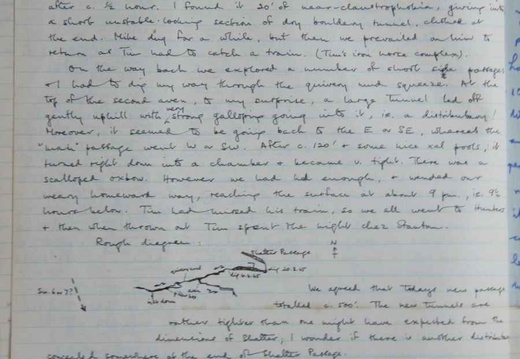 after c. ½ hour. I found it 20' of near-claustrophobia, giving into
a short unstable-looking section of dry bouldery tunnel, choked at
the end. Mike dug for a while, but then we prevailed on him to
return as Tim had to catch a train. (Tim's iron horse complex).
On the way back we explored a number of short side passages
& I had to dig my way through the quivery mud squeeze. At the
top of the second aven, to my surprise, a large tunnel led off
gently uphill with very strong scalloping going into it, i.e. a distributary!
Moreover, it seemed to be going back to the E or SE, whereas the
"main" passage went W or SW. After c. 120' & some nice xal pools, it
turned right down into a chamber & became v. tight. There was a
scalloped oxbow. However we had had enough, & wended our
weary homeward way, reaching the surface at about 9 pm, i.e. 9½
hours below. Tim had missed his train, so we all went to Hunters
& then when thrown out Tim spent the night chez Stanton.
Rough diagram:
Shatter Passage
N
We agreed that today's new passage
totalled c. 500'. The new tunnels are
rather tighter than one might have expected from the
dimensions of Shatter, I wonder if there is another distributary
concealed somewhere at the end of Shatter Passage.